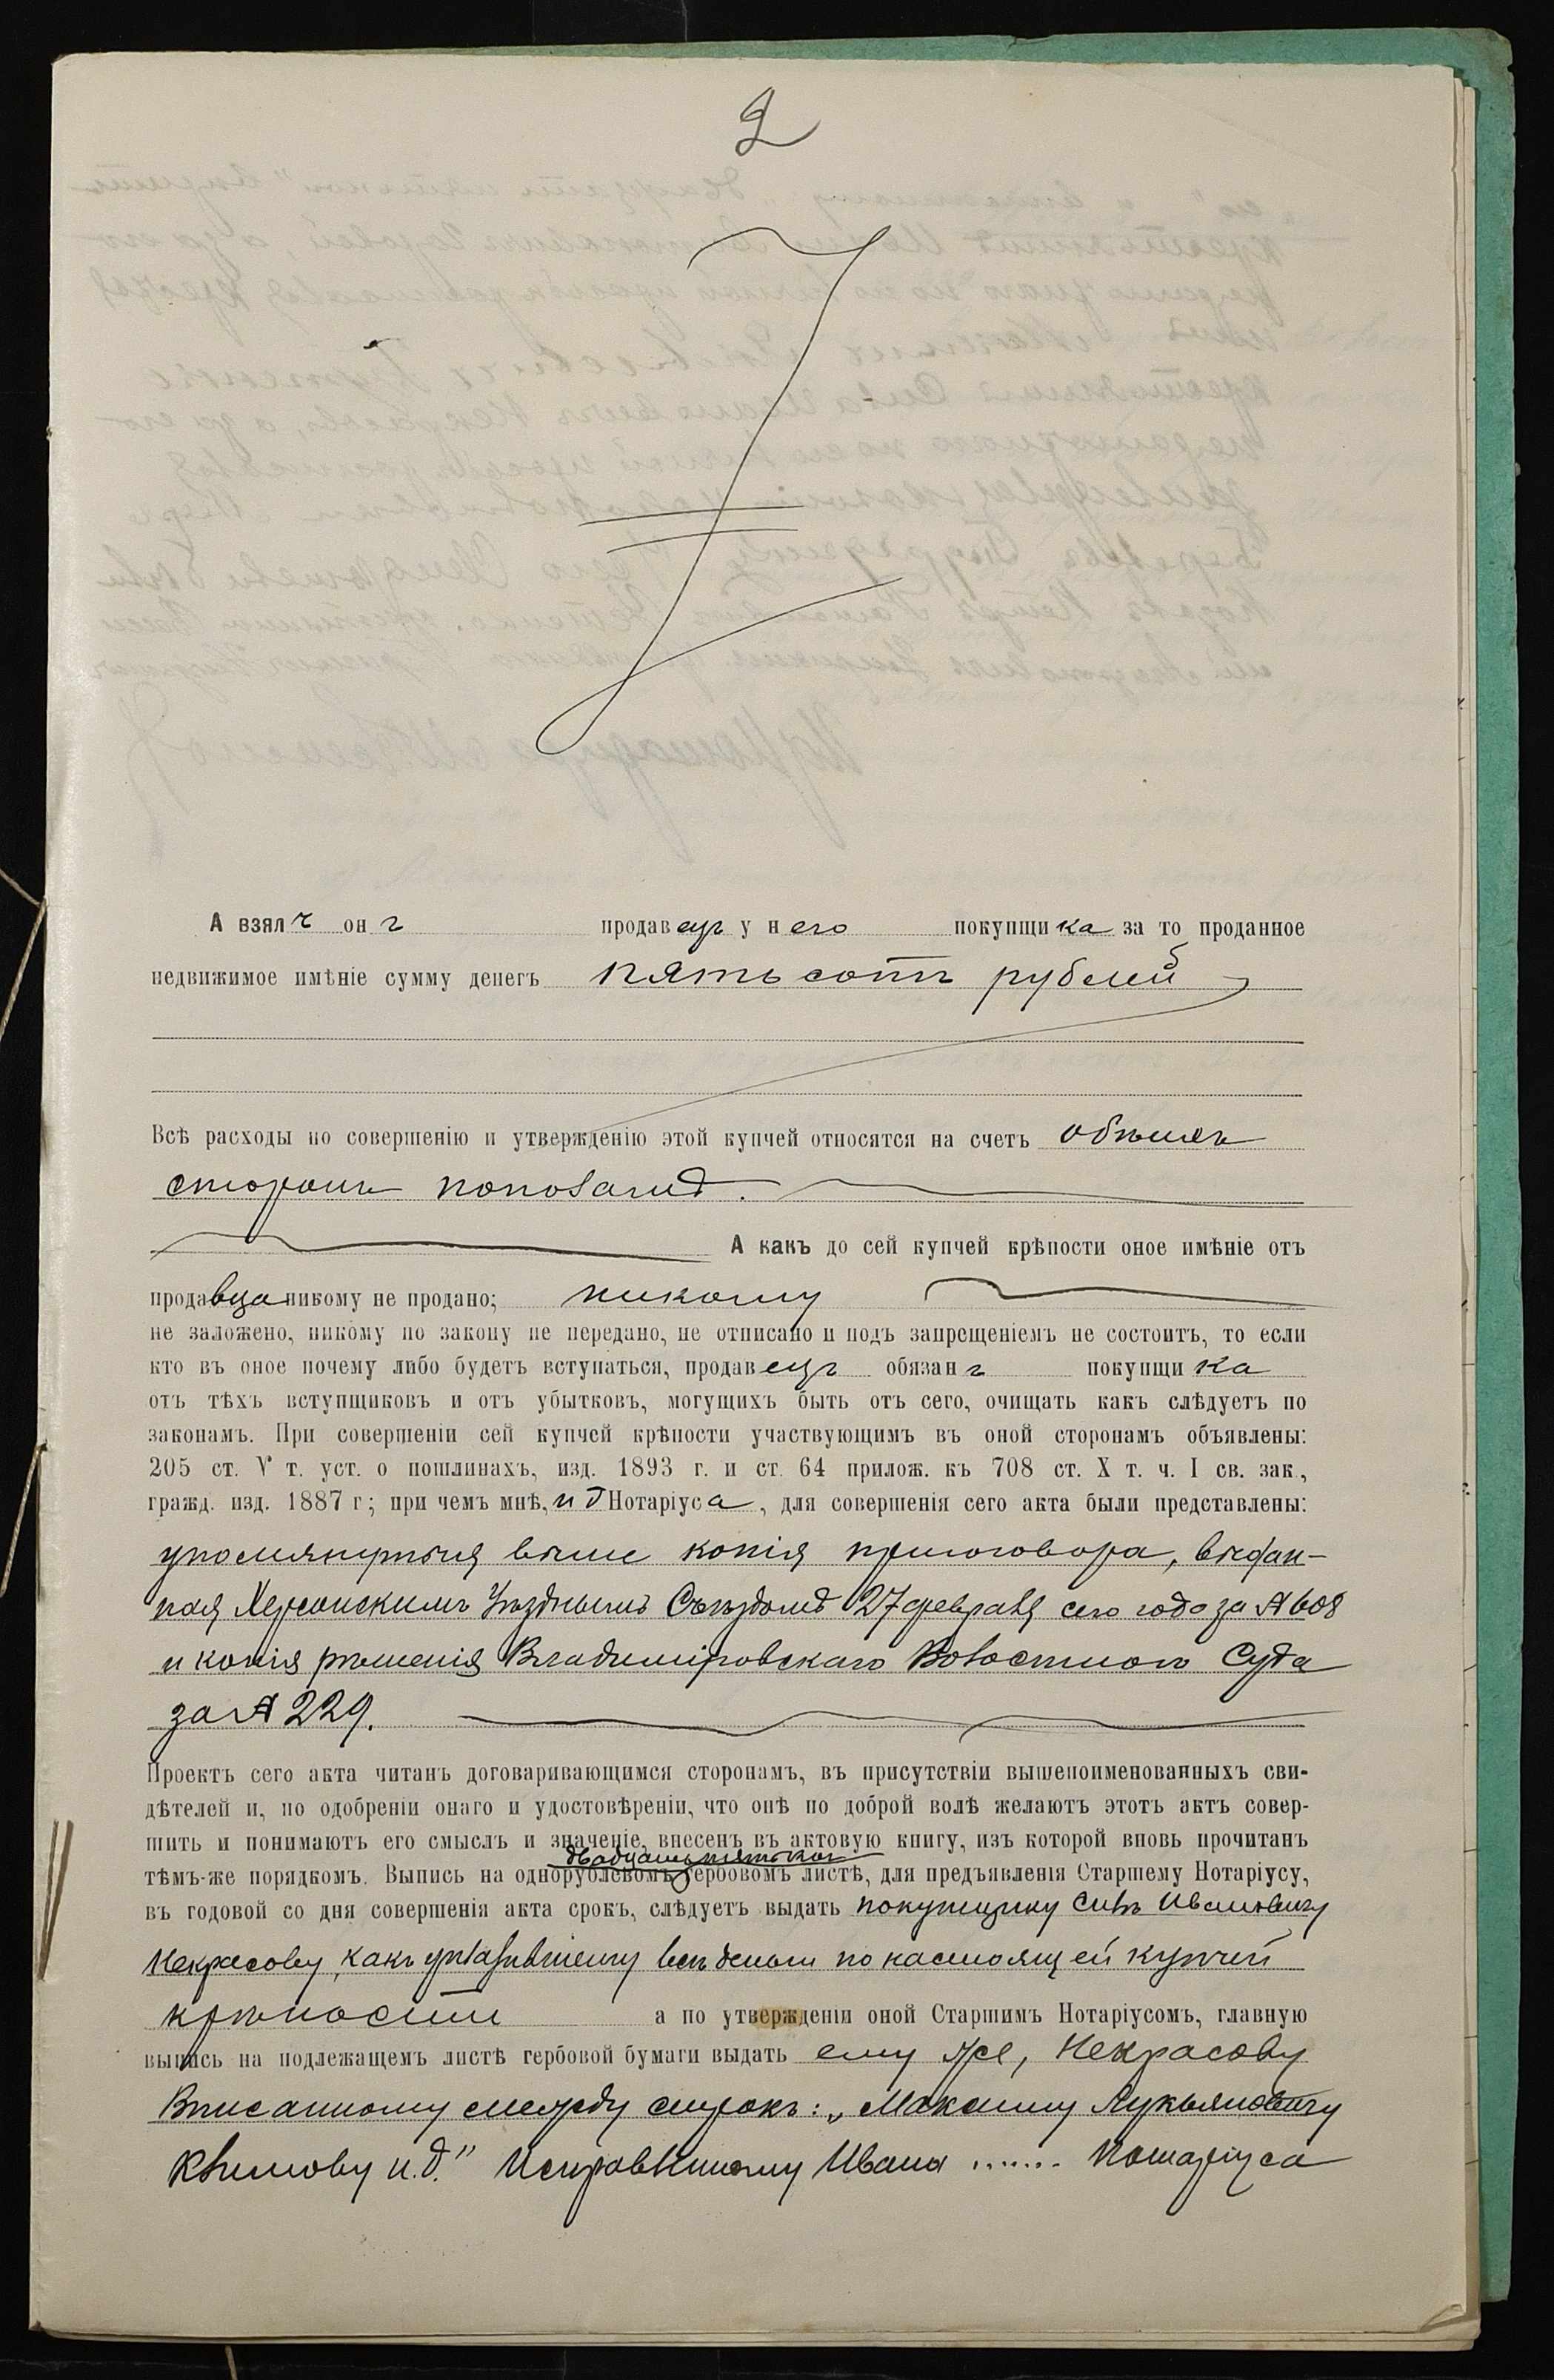 2
А взялъ онъ продавецъ у него покупщика за то проданное
недвижимое имѣніе сумму денегъ пятьсотъ рублей
Всѣ расходы по совершенію и утвержденію этой купчей относятся на счетъ обѣихъ
сторонъ пополамъ.
А какъ до сей купчей крѣпости оное имѣніе отъ
продавца никому не продано; никому
не заложено, никому по закону не передано, не отписано и подъ запрещеніемъ не состоитъ, то если
кто въ оное почему либо будетъ вступаться, продавецъ обязанъ покупщика
отъ тѣхъ вступщиковъ и отъ убытковъ, могущихъ быть отъ сего, очищать какъ слѣдуетъ по
законамъ. При совершеніи сей купчей крѣпости участвующимъ въ оной сторонамъ объявлены:
205 ст. V т. уст. о пошлинахъ, изд. 1893 г. и ст. 64 прилож. къ 708 ст. X т. ч. I св. зак.,
гражд. изд. 1887 г; при чемъ мнѣ, и д Нотаріуса, для совершенія сего акта были представлены:
упомянутыя выше копія приговора, выдан-
ная Херсонскимъ Уѣзднымъ Съѣздомъ 27 февраля сего года за № 608
и копія рѣшенія Владиміровскаго Волостного Суда
за № 229.
Проектъ сего акта читанъ договаривающимся сторонамъ, въ присутствіи вышепоименованныхъ сви-
дѣтелей и, по одобреніи онаго и удостовѣреніи, что онѣ по доброй волѣ желаютъ этотъ актъ совер-
шить и понимаютъ его смыслъ и значеніе, внесенъ въ актовую книгу, изъ которой вновь прочитанъ
двадцатипятикоп
тѣмъ-же порядкомъ. Выпись на однорублевомъ гербовомъ листѣ, для предъявленія Старшему Нотаріусу,
въ годовой со дня совершенія акта срокъ, слѣдуетъ выдать покупщику Силѣ Ивановичу
Некрасову, какъ уплатившему всѣ деньги по настоящей купчей
крѣпости а по утвержденіи оной Старшимъ Нотаріусомъ, главную
выпись на подлежащемъ листѣ гербовой бумаги выдать ему же, Некрасову
Вписанному между строкъ: „Максиму Лукьяновичу
Климову и.д." Исправленному Ивана ....... Нотаріуса